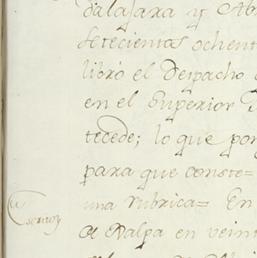 dalajara y Ab
setecientos ochent
libró el Despacho
en el Superior
tecede; lo que pon
para que conste=
una rubrica= En
Dalpa en veint